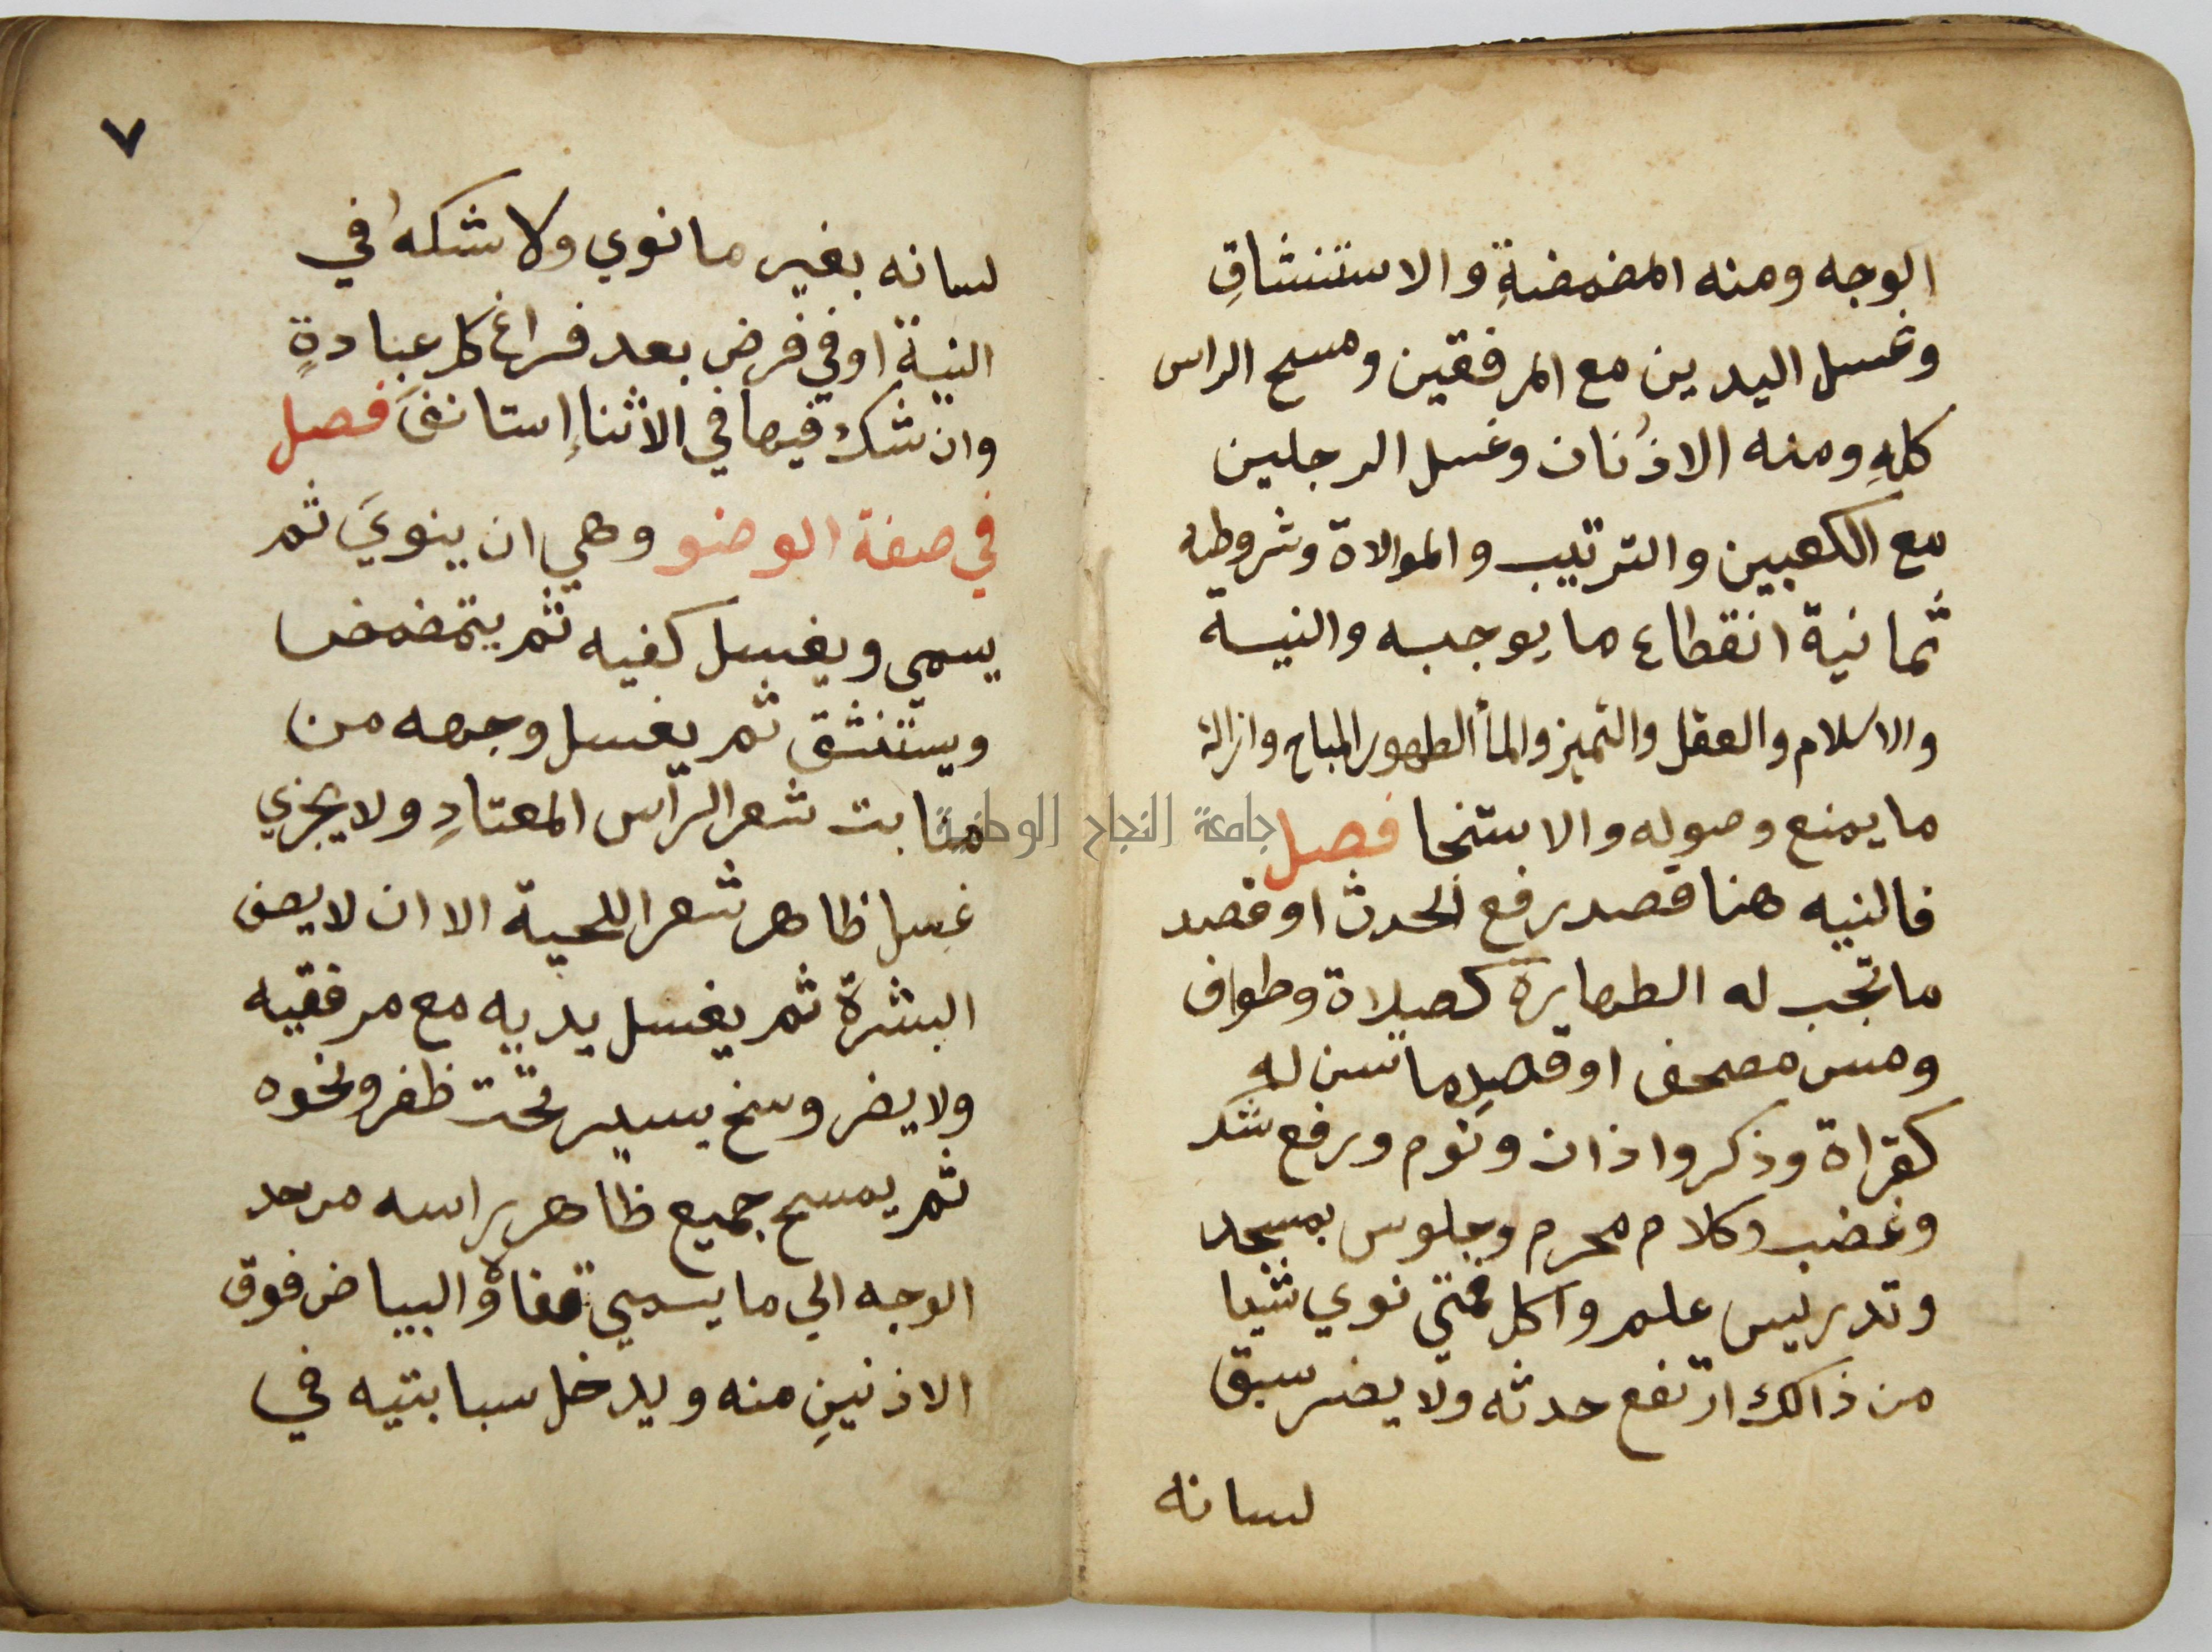 الوجه ومنه المضمضةِ والاستنشاقِ
وغسل اليدين مع المرفقين ومسح الراس
كلهِ ومنه الاذُنان وغسل الرجلين
مع الكعبين والترتيب والموالاة وشروطه
ثمانية انقطاع ما يوجبه والنية
والاسلام والعقل والتميز والمأ الطهور المباح وازالة
ما يمنع وصوله والاستنجا فصل
فالنيه هنا قصد رفع الحدث او قصد
ما تجب له الطهارة كصلاة وطواف
ومس مصحف او قصد ما تسن له
كقراة وذكر واذان ونوم ورفع شك
وغضب وكلام محرم وجلوس بمسجد
وتدريس علم واكل فمتي نوي شيا
من ذالك ارتفع حدثه ولا يضر سبق
لسانه
٧
لسانه بغير ما نوي ولا شكهُ في
النية او في فرض بعد فراغ كل عبادةٍ
وان شك فيها في الاثناءِ إستانفَ فصل
في صفة الوضو وهي ان ينويَ ثم
يسمي ويغسل كفيه ثم يتمضمض
ويستنشق ثم يغسل وجهه من
منابت شعر الرأس المعتادِ ولا يجزي
غسل ظاهر شعر اللحية الا ان لا يصف
البشرة ثم يغسل يديه مع مرفقيه
ولا يضر وسخ يسير تحت ظفر ونحوه
ثم يمسح جميع ظاهر راسه من حد
الوجه الي ما يسمي قفاهُ والبياض فوق
الاذنينِ منه ويدخل سبابتيه في
جامعة النجاح الوطنية